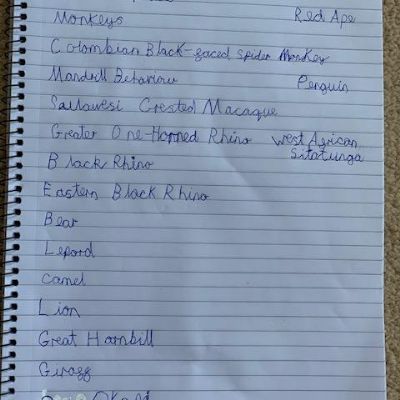 Monkeys Red Ape
Colombian Black-faced Spider Monkey
Mandrill Behaviour
Penguin
Sullawesi Crested Macaque
Greater One-Horned Rhino West African
Sitatunga
Black Rhino
Eastern Black Rhino
Bear
Lepord
Camel
Lion
Great Hornbill
Giraff